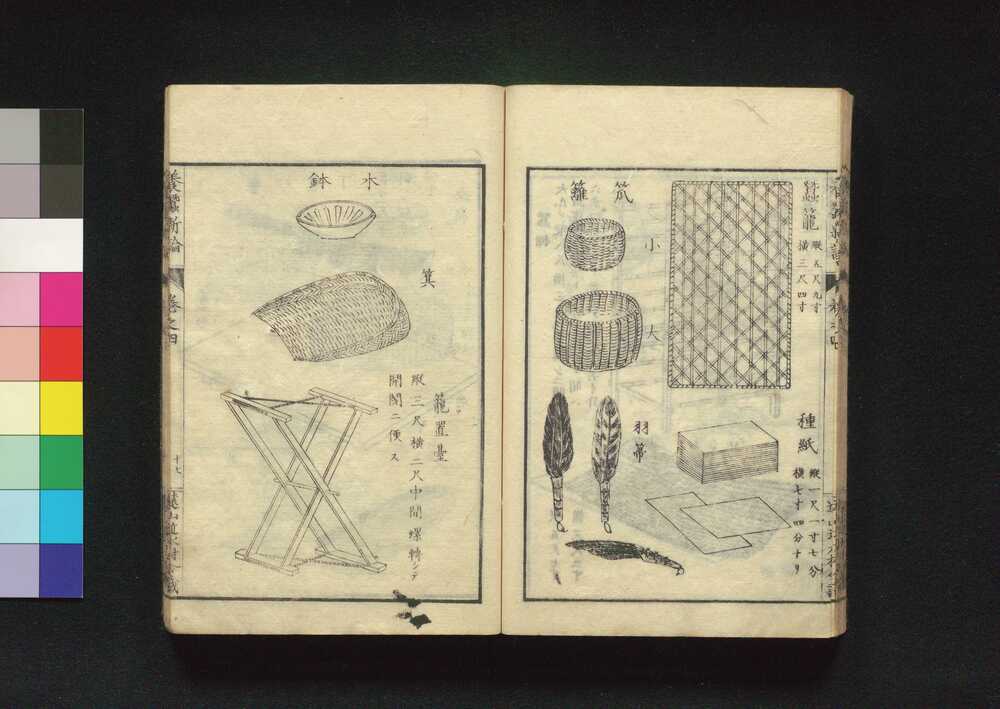 蠶籠
縱五尺九寸
横三尺四寸
種紙
縱一尺一寸七分
横七寸四分ナリ
笊籬
小
大
羽箒
木鉢
箕
籠置臺
縱三尺横二尺中間螺轉シテ
開闔ニ便ス
養蠶新論
卷之四
十七